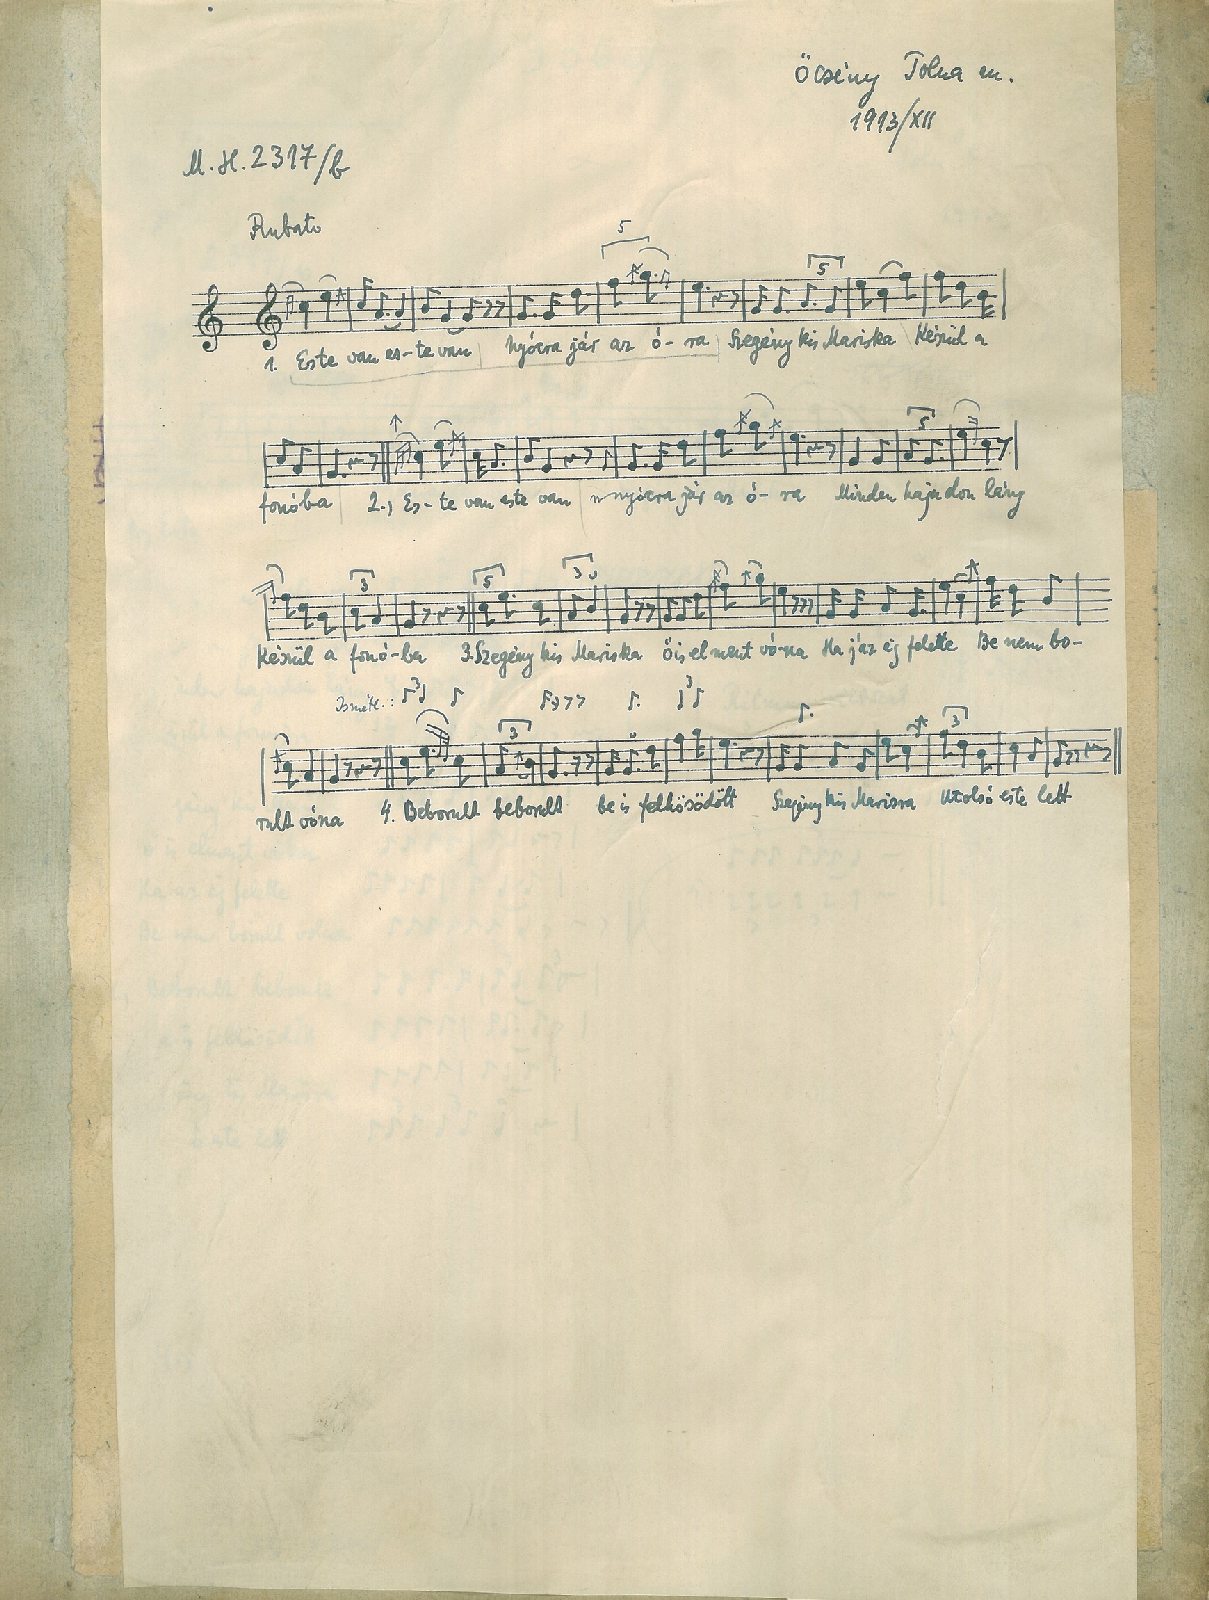 Öcsény Tolna m.
1913/XII
M.H. 2317/b
Rubato
5
5
1. Este van es-te van nyócra jár az ó-ra Szegény kis Mariska Készül a
5
fonóba 2., Es-te van este van nyócra jár az ó-ra Minden hajadon lány
3 5 3
Készül a fonó-ba 3. Szegény kis Mariska Ő is elment vó-na Ha jaz ég felette Be nem bo-
Ismétl.: 3 3
3 3
rult vóna 4. Beborult beborult be is felhősödött Szegény kis Marisra Utolsó este lett